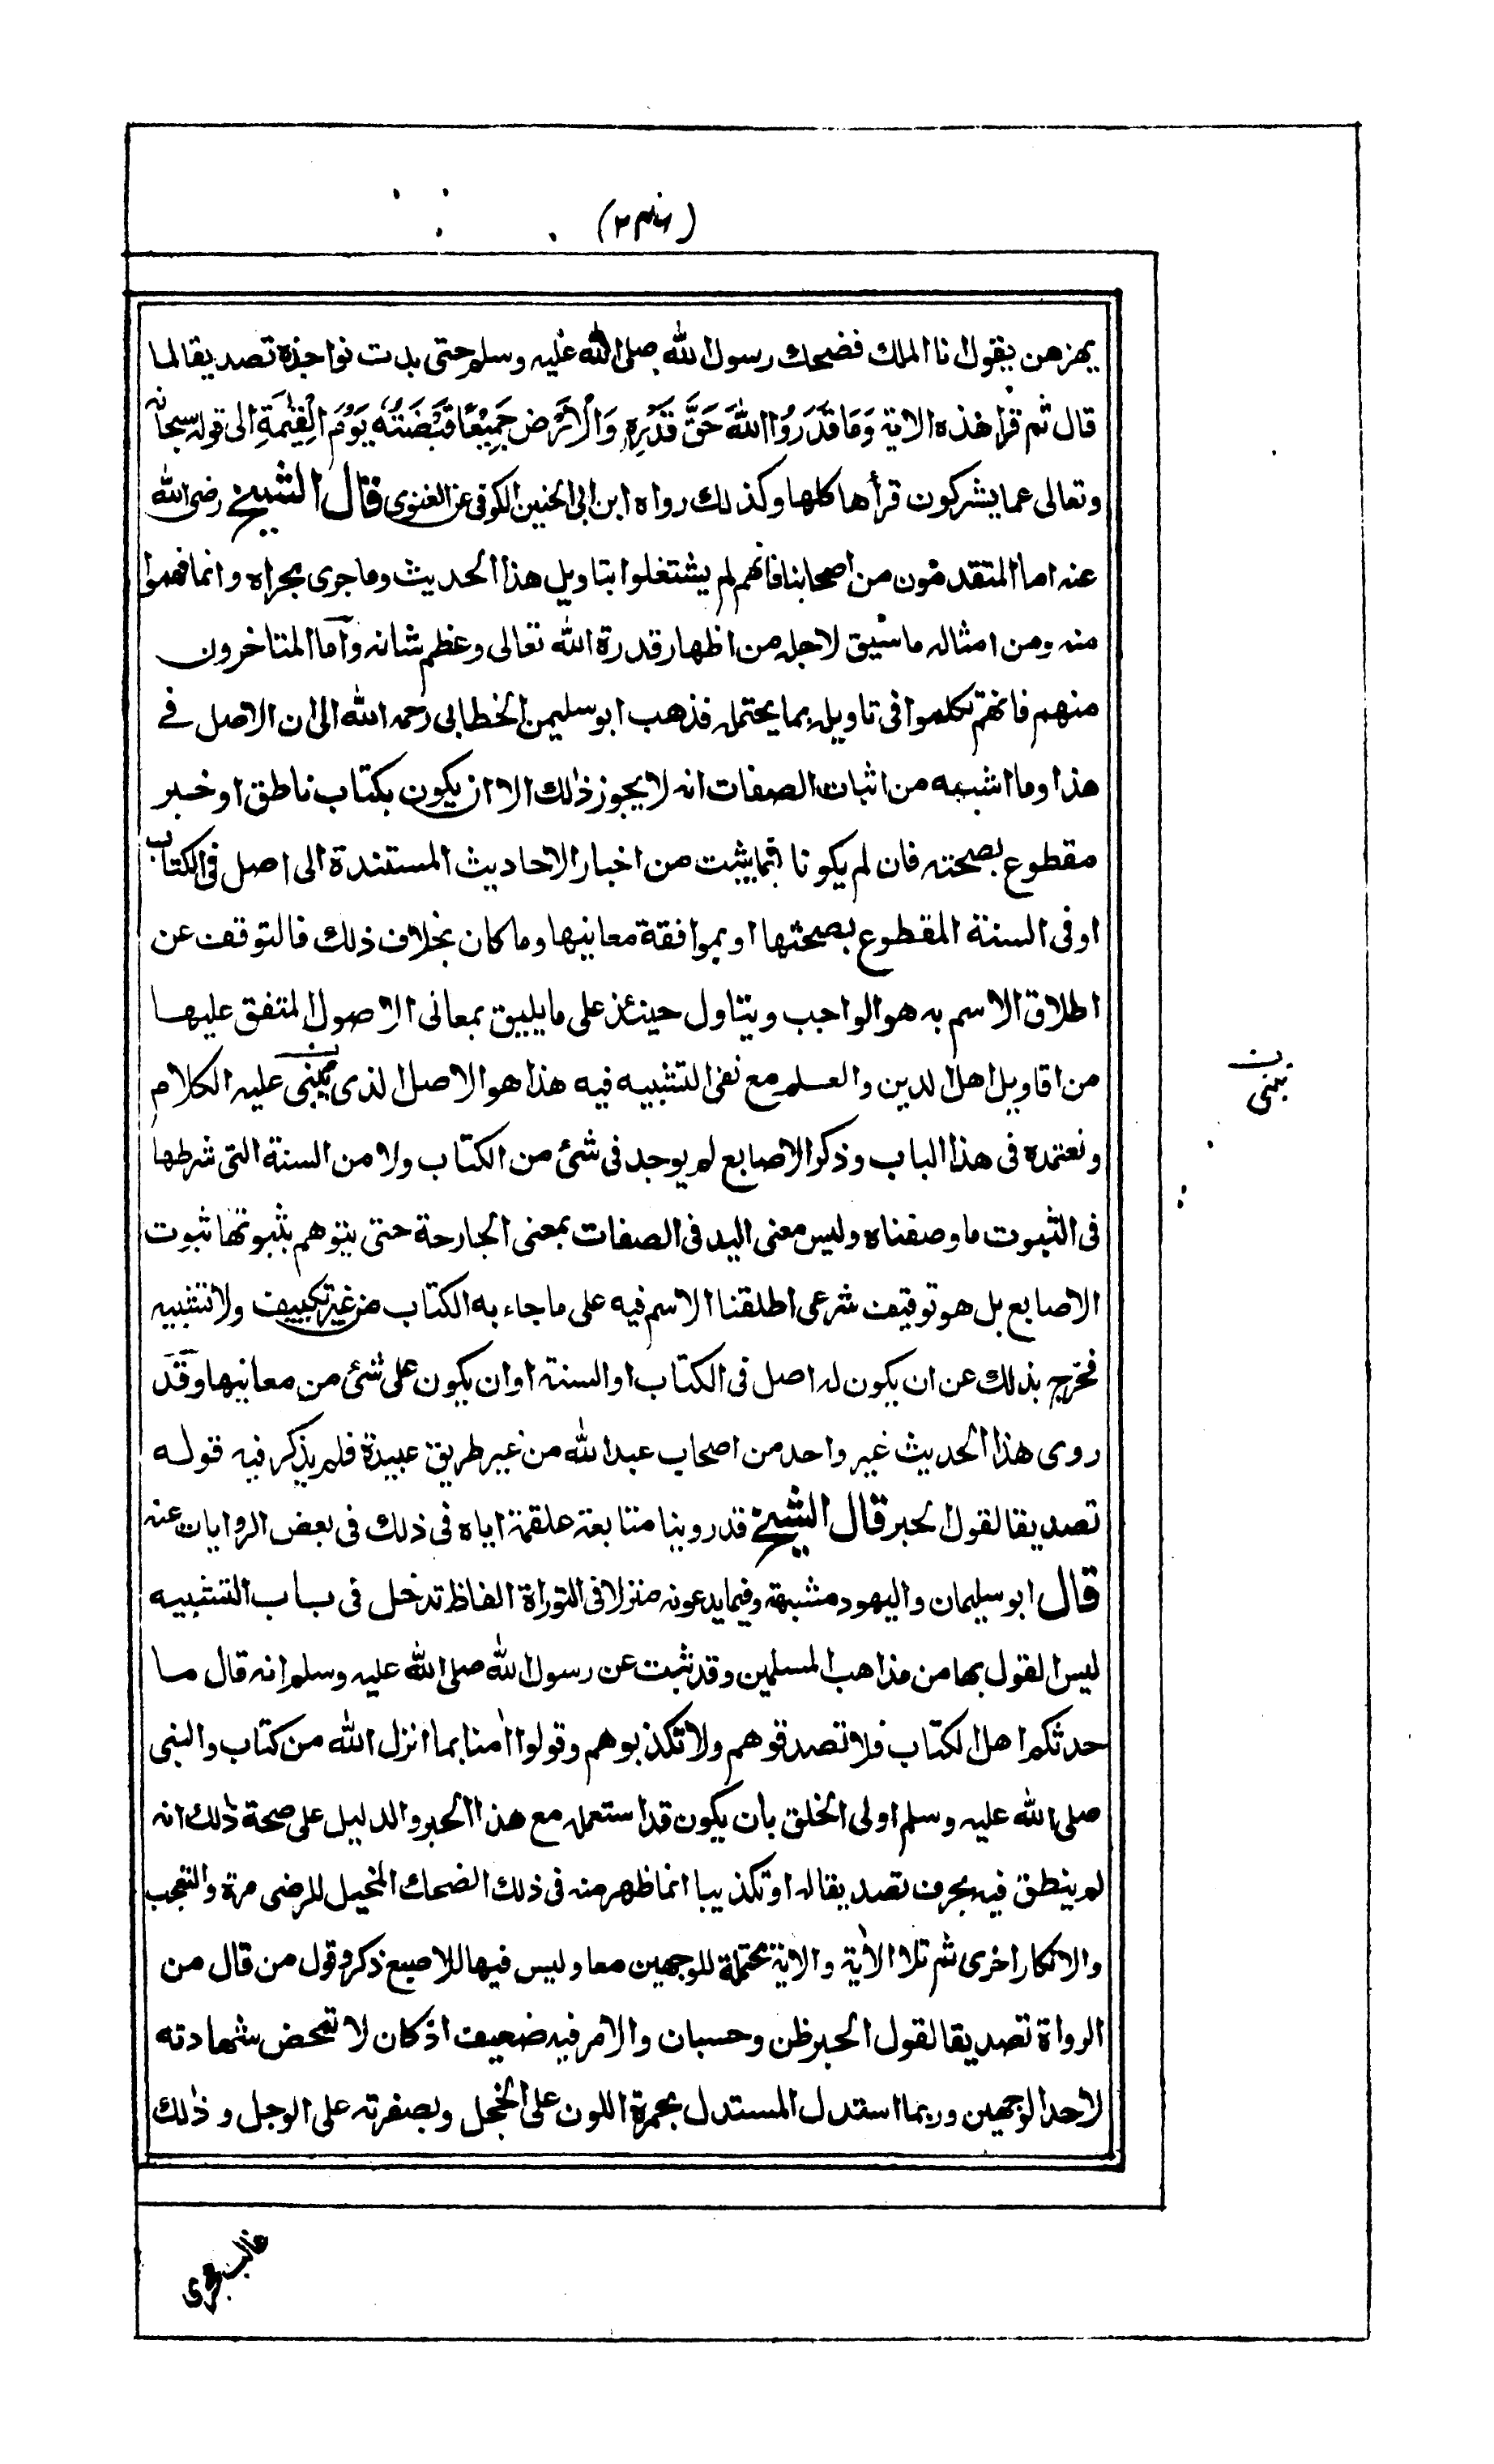 يهزهن يقول انا الملك فضحك رسول الله صلى الله عليه وسلم حتى بدت نواجذه تصديقا لما
قال ثم قرأ هذه الاية وَمَا قَدَرُوا اللهَ حَقَّ قَدْرِهٖ وَالْاَرْضُ جَمِيْعًا قَبْضَتُهٗ يَوْمَ الْقِيٰمَةِ الى قوله سبحانه
وتعالى عما يشركون قرأها كلها وكذلك رواه ابن ابى الحنين الكوفى عن الغنوى قال الشيخ رضى الله
عنه اما المتقدمون من اصحابنا فانهم لم يشتغلوا بتاويل هذا الحديث وما جرى مجراه وانما فهموا
منه ومن امثاله ما سيق لاجله من اظهار قدرة الله تعالى وعظم شانه وأما المتاخرون
منهم فانهم تكلموا فى تاويله بما يحتمله فذهب ابو سليمن الخطابى رحمه الله الى ان الاصل فے
هذا وما اشبهه من اثبات الصفات انه لا يجوز ذلك الا ان يكون بكتاب ناطق او خبر
مقطوع بصحته فان لم يكونا فبما يثبت من اخبار الاحاديث المستندة الى اصل فى الكتاب
او فى السنة المقطوع بصحتها او بموافقة معانيها وما كان بخلاف ذلك فالتوقف عن
اطلاق الاسم به هو الواجب ويتاول حينئذ على ما يليق بمعانى الاصول المتفق عليها
من اقاويل اهل الدين والعلم مع نفى التشبيه فيه هذا هو الاصل الذى يبنى عليه الكلام
ونعتمده فى هذا الباب وذكر الاصابع لم يوجد فى شئ من الكتاب ولا من السنة التى شرطها
فى الثبوت ما وصفناه وليس معنى اليد فى الصفات بمعنى الجارحة حتى يتوهم بثبوتها ثبوت
الاصابع بل هو توقيف شرعى اطلقنا الاسم فيه على ما جاء به الكتاب من غير تكييف ولا تشبيه
فخرج بذلك عن ان يكون له اصل فى الكتاب او السنة او ان يكون على شئ من معانيها وقد
روى هذا الحديث غير واحد من اصحاب عبدالله من غير طريق عبيدة فلم يذكر فيه قوله
تصديقا لقول الحبر قال الشيخ قد روينا متابعة علقمة اياه فى ذلك فى بعض الروايات عنه
قال ابو سليمان واليهود مشبهة وفيما يدعونه منزلا فى التوراة الفاظ تدخل فى باب التشبيه
ليس القول بها من مذاهب المسلمين وقد ثبت عن رسول الله صلى الله عليه وسلم انه قال ما
حدثكم اهل الكتاب فلا تصدقوهم ولا تكذبوهم وقولوا امنا بما انزل الله من كتاب والنبى
صلى الله عليه وسلم اولى الخلق بان يكون قد استعمله مع هذا الحبر والدليل على صحة ذلك انه
لم ينطق فيه بحرف تصديقا له او تكذيبا انما ظهر منه فى ذلك الضحك المخيل للرضى مرة والتعجب
والانكار اخرى ثم تلا الاية والاية محتملة للوجهين معا وليس فيها للاصبع ذكر وقول من قال من
الرواة تصديقا لقول الحبر ظن وحسبان والامر فيه ضعيف اذ كان لا تمحض شهادته
لاحد الوجهين وربما استدل المستدل بحمرة اللون على الخجل وبصفرته على الوجل و ذلك
ن
يبنى
غالب